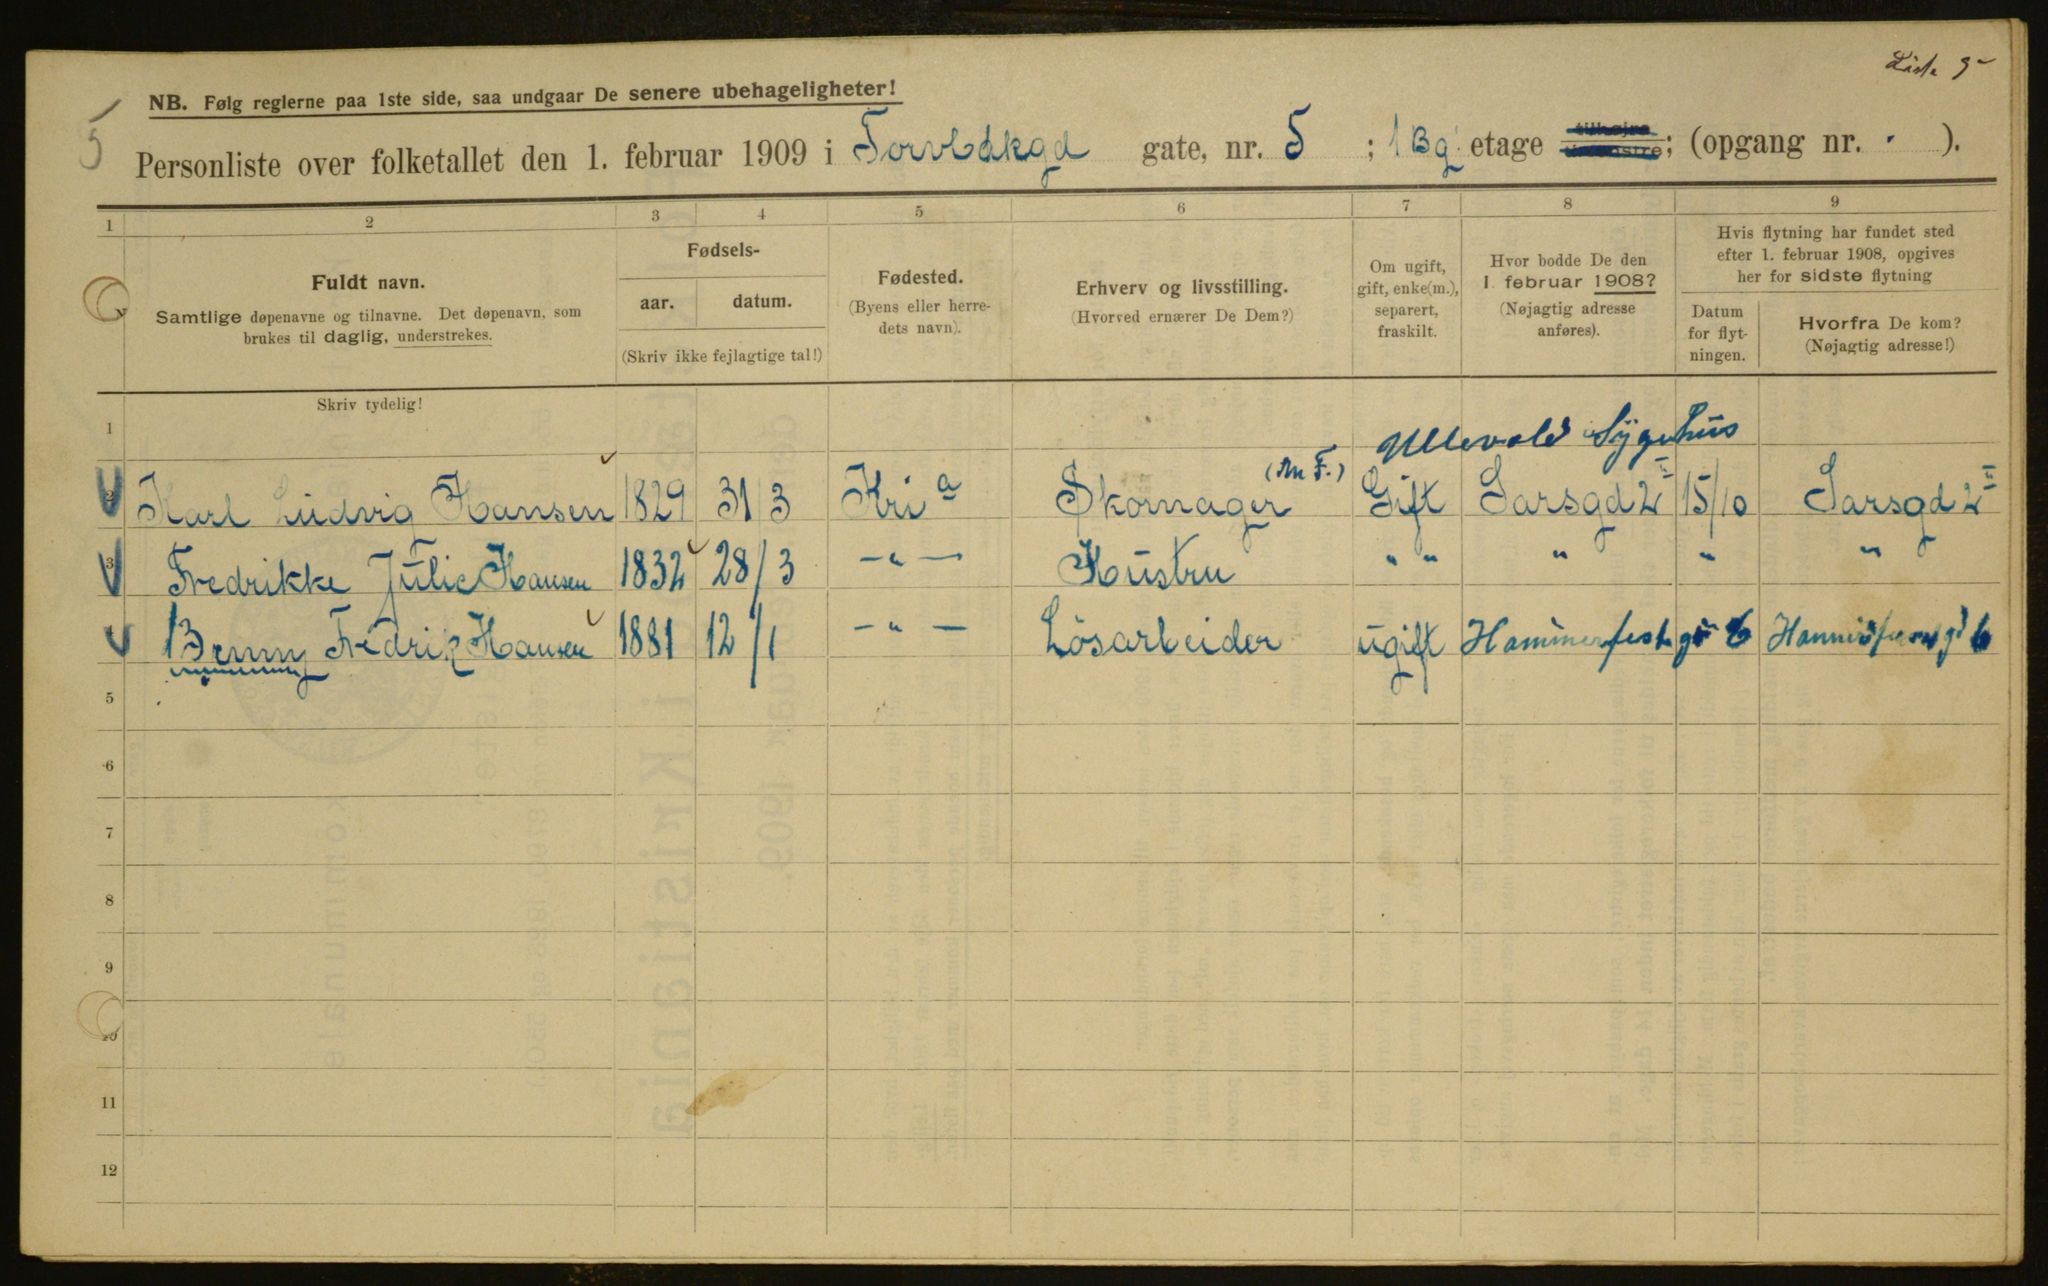 Liste 9
NB. Følg reglerne paa 1ste side, saa undgaar De senere ubehageligheter!
5
Personliste over folketallet den 1. februar 1909 i gate, nr. 5 ; 1 Bg etage tilhøjre ; (opgang nr. · ).
1 2 3 4 5 6 7 8 9
Fuldt navn.
Samtlige døpenavne og tilnavne. Det døpenavn, som
brukes til daglig, understrekes.
Fødsels-
aar. datum.
(Skriv ikke fejlagtige tal!)
Fødested.
(Byens eller herre-
dets navn).
Erhverv og livsstilling.
(Hvorved ernærer De Dem?)
Om ugift,
gift, enke(m.),
separert,
fraskilt.
Hvor bodde De den
1. februar 1908?
(Nøjagtig adresse
anføres).
Hvis flytning har fundet sted
efter 1. februar 1908, opgives
her for sidste flytning
Datum
for flyt-
ningen.
Hvorfra De kom?
(Nøjagtig adresse!)
Skriv tydelig!
1 Ullevold Sygehus
2 Karl Ludvig Hansen 1829 31/3 Kria Skomager (M F.) Gift Sarsgd 2 II 15/10 Sarsgd 2 II
3 Fredrikke Julie Hansen 1832 28/3 —"— Hustru " " " " "
Benny Fredrik Hansen 1881 12/1 —"— Løsarbeider ugift Hammerfestg 6 Hammerfestgd 6
5
6
7
8
9
10
11
12